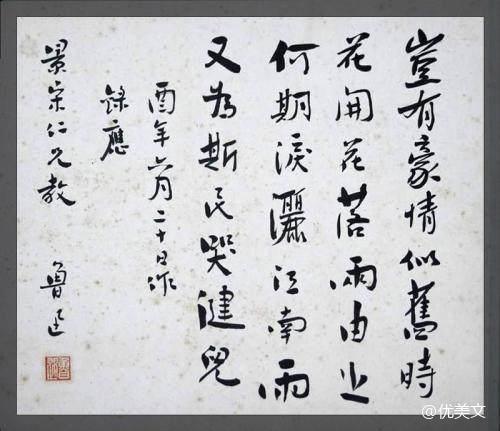 豈有豪情似舊時
花開花落兩由之
何期淚灑江南雨
又為斯民哭健兒
酉年六月二十日作
錄應
景宋仁兄教
魯迅
@优美文